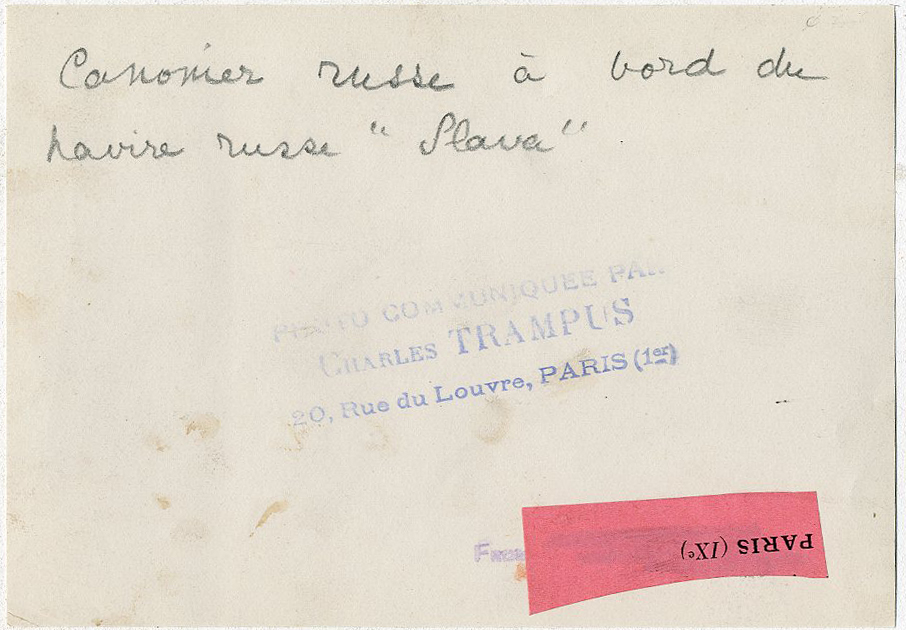 Canonier russe à bord du
navire russe "Slava"
PHOTO COMMUNIQUEE PAR
CHARLES TRAMPUS
20, Rue du Louvre, PARIS (1er)
PARIS (IXe)